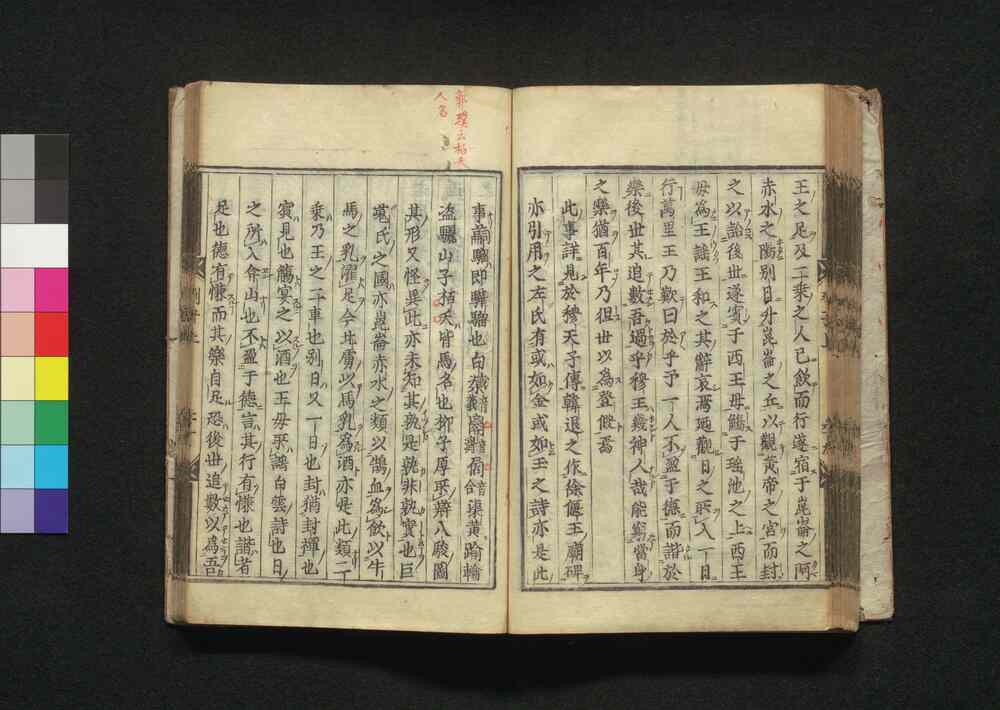 王之足及二乗之人已飲而行遂宿于崑崙之阿
赤水之陽別日升崑崙之丘以觀黄帝之宮而封
之以詒後世遂賓于西王母觴于瑤池之上西王
母為王謡王和之其辭哀焉廼觀日之所入一日
行萬里王乃歎曰於乎予一人不盈于德而諧於
樂後世其追數吾過乎穆王幾神人哉能窮當身
之樂猶百年乃徂世以為登假焉
此事詳見於穆天子傳韓退之作徐偃王廟碑
亦引用之左氏有或如金或如玉之詩亦是此
郭璞云栢夭
人名
事騮即驊騮也白渠黄踰輪
盗驪山子栢夭皆馬名也柳子厚所辯八駿圖
其形又怪異此亦未知其孰是孰非孰實也巨
蒐氏之國亦崑崙赤水之類以鵠血為飲以牛
馬之乳濯足今北虜以馬乳為酒亦是此類二
乗乃王之二車也別日又一日也封猶封禪也
賓見也觴宴之以酒也王母所謡白雲詩也日
之所入弇山也不盈于德言其行有慊也諧者
足也德有慊而其樂自足恐後世追數以為吾